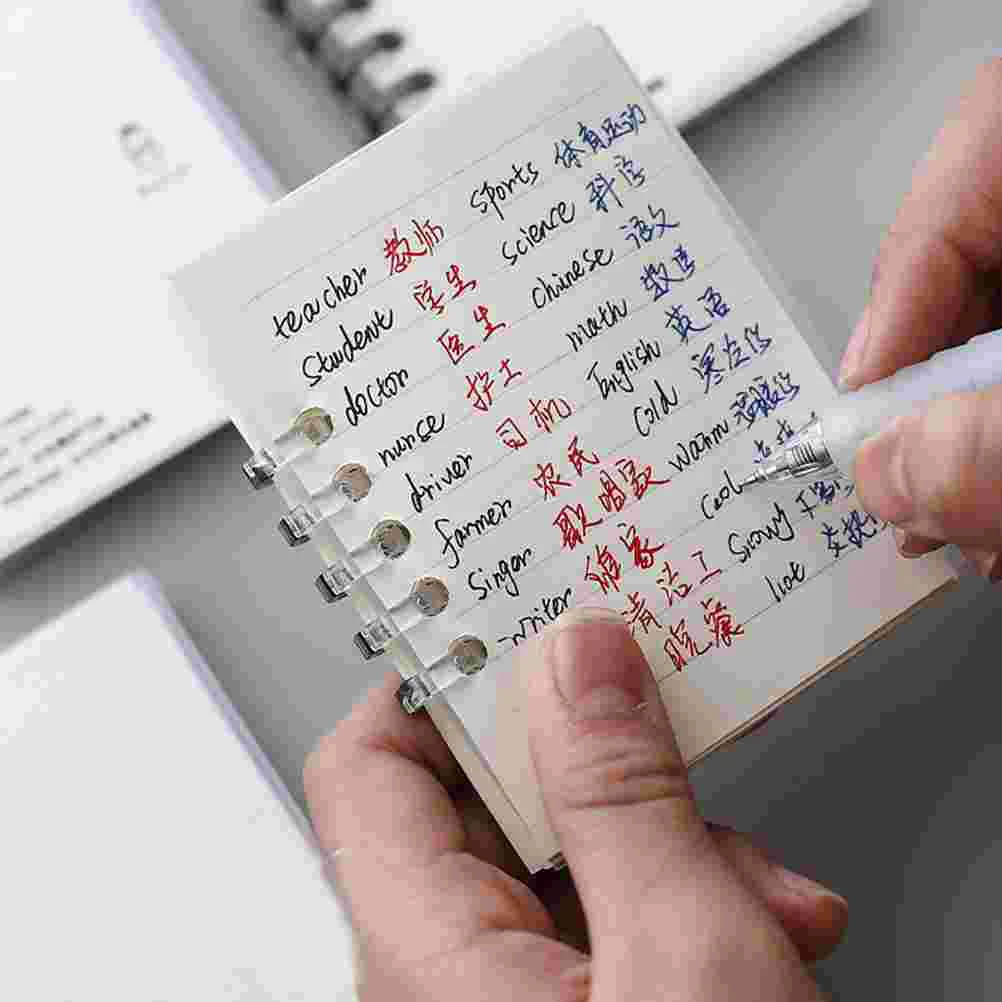 teacher 教师 sports 体育运动
student 学生 science 科学
doctor 医生 chinese 语文
nurse 护士 math 数学
driver 司机 English 英语
farmer 农民 cold 寒冷的
singer 歌唱家 warm 温暖的
writer cool
清洁工 snowy
晚餐 hot